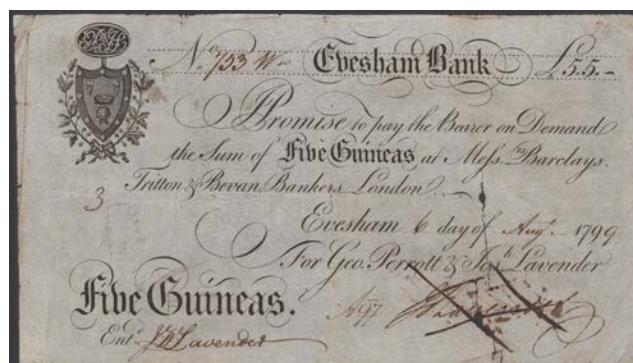 No. 753 Evesham Bank £5.5.-
I Promise to pay the Bearer on Demand
the Sum of Five Guineas at Messrs. Barclays.
Tritton & Bevan, Bankers, London.
3
Evesham 6 day of Augt. 1799
For Geo. Perrott & Josh. Lavender
Five Guineas.
Entd. Lavender